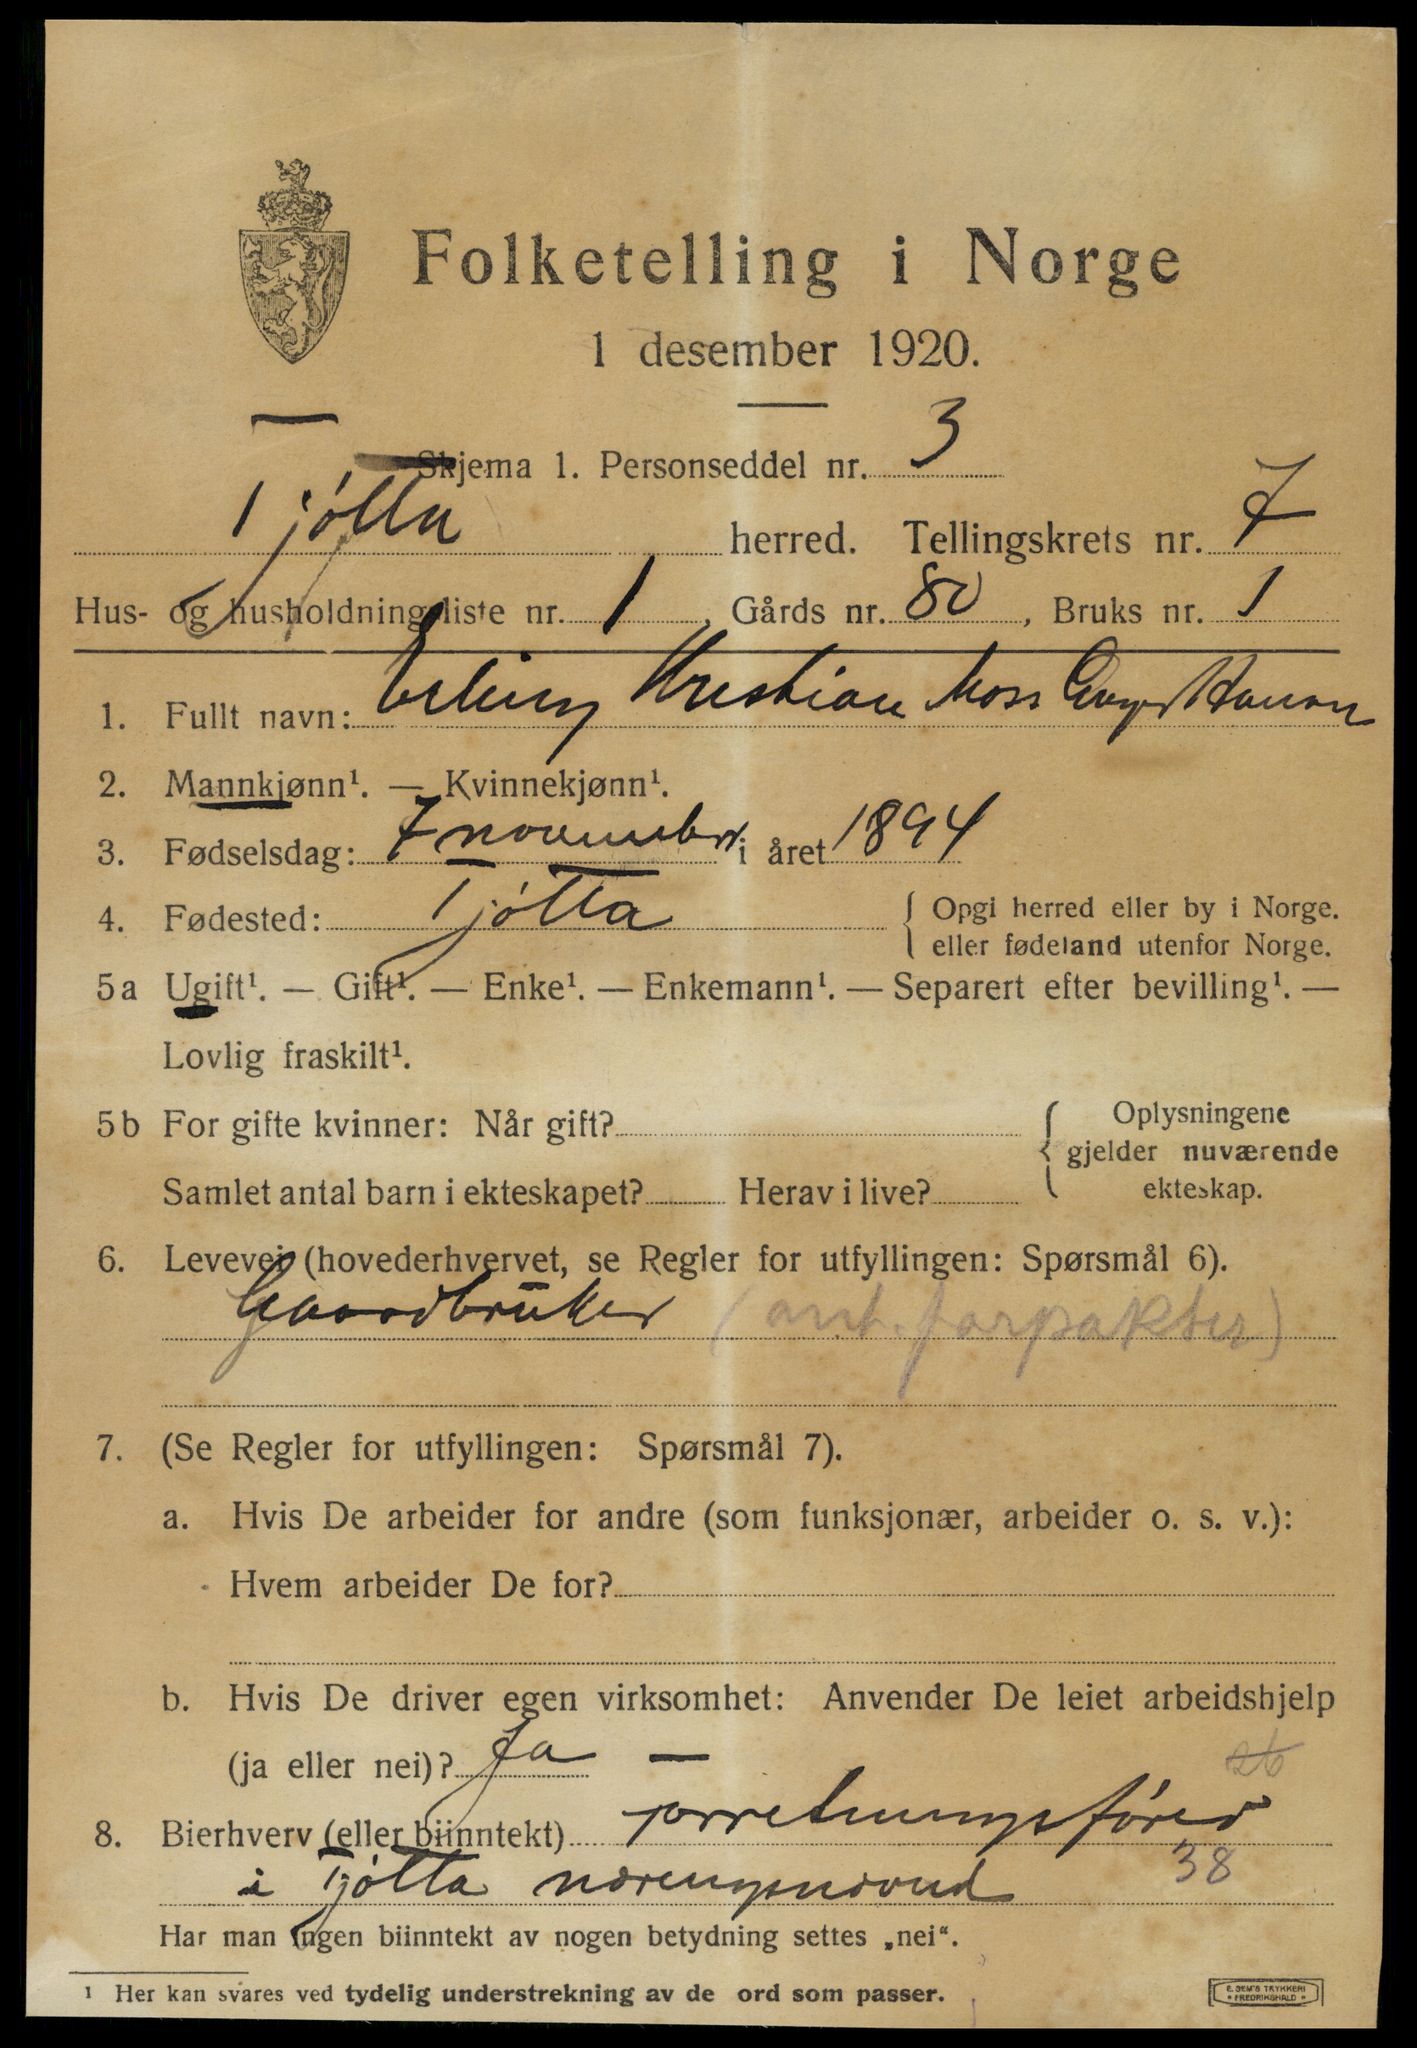 Folketelling i Norge
1 desember 1920.
Skjema 1. Personseddel nr. 3
Tjótta herred. Tellingskrets nr. 7
Hus- og husholdningsliste nr. 1, Gårds nr. 80, Bruks nr. 1
1. Fullt navn: Erling Kristian Moss Hanson
2. Mannkjønn¹. — Kvinnekjønn¹.
3. Fødselsdag: 7 november i året 1894
4. Fødested: Tjótta { Opgi herred eller by i Norge.
eller fødeland utenfor Norge.
5a Ugift¹. — Gift¹. — Enke¹. — Enkemann¹. — Separert efter bevilling¹. —
Lovlig fraskilt¹.
5b For gifte kvinner: Når gift? { Oplysningene
gjelder nuværende
Samlet antal barn i ekteskapet? Herav i live? ekteskap.
6. Levevei (hovederhvervet, se Regler for utfyllingen: Spørsmål 6).
Gaardbruker (ant. forpakter)
7. (Se Regler for utfyllingen: Spørsmål 7).
a. Hvis De arbeider for andre (som funksjonær, arbeider o. s. v.):
Hvem arbeider De for?
b. Hvis De driver egen virksomhet: Anvender De leiet arbeidshjelp
(ja eller nei)? Ja
8. Bierhverv (eller biinntekt) Forretningsfórer
i Tjótta næringsnævnd 38
Har man ingen biinntekt av nogen betydning settes „nei“.
¹ Her kan svares ved tydelig understrekning av de ord som passer.
E. SEM'S TRYKKERI
FREDRIKSHALD